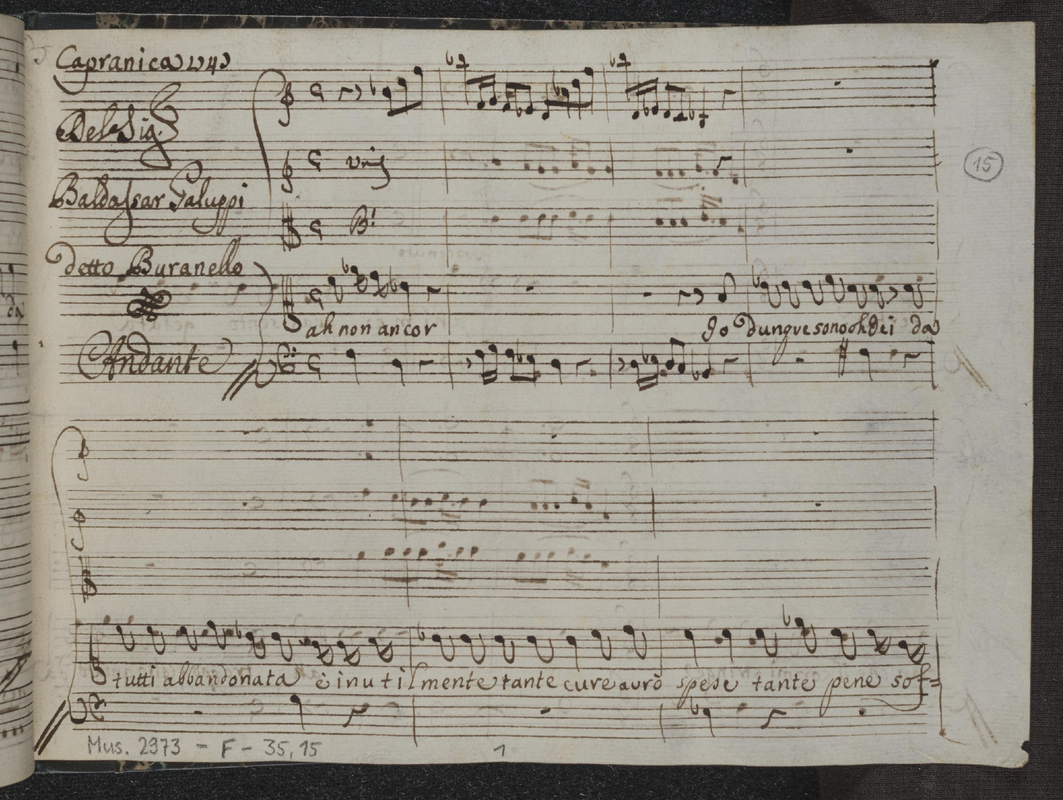 Capranica 1749
Del Sig.
Baldassar Galuppi
detto Buranello
Andante
15
ah non ancor
Io dunque sono oh Dei da
tutti abbandonata è inutilmente tante cure avrò spese tante pene sof=
Mus. 2973 - F - 35, 15
1